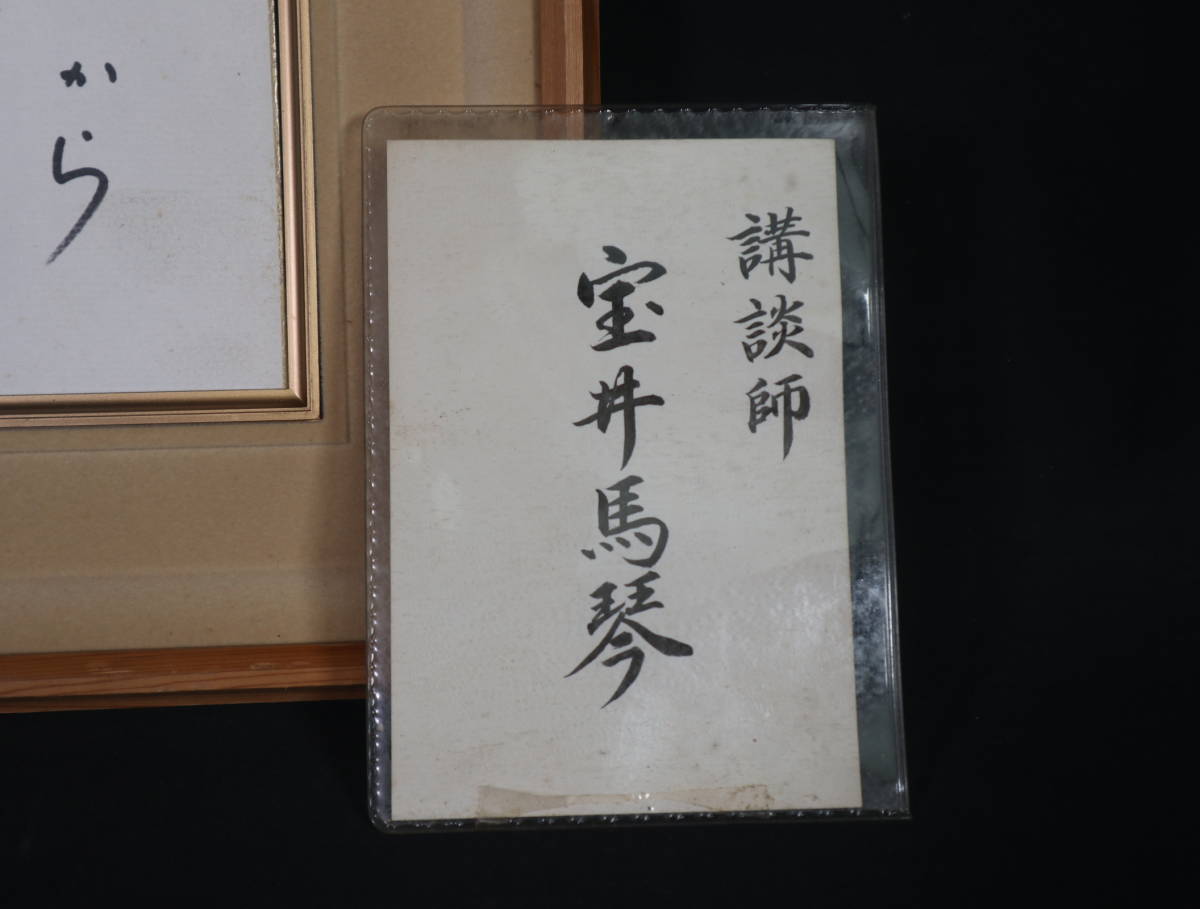 講談師
宝井馬琴
から